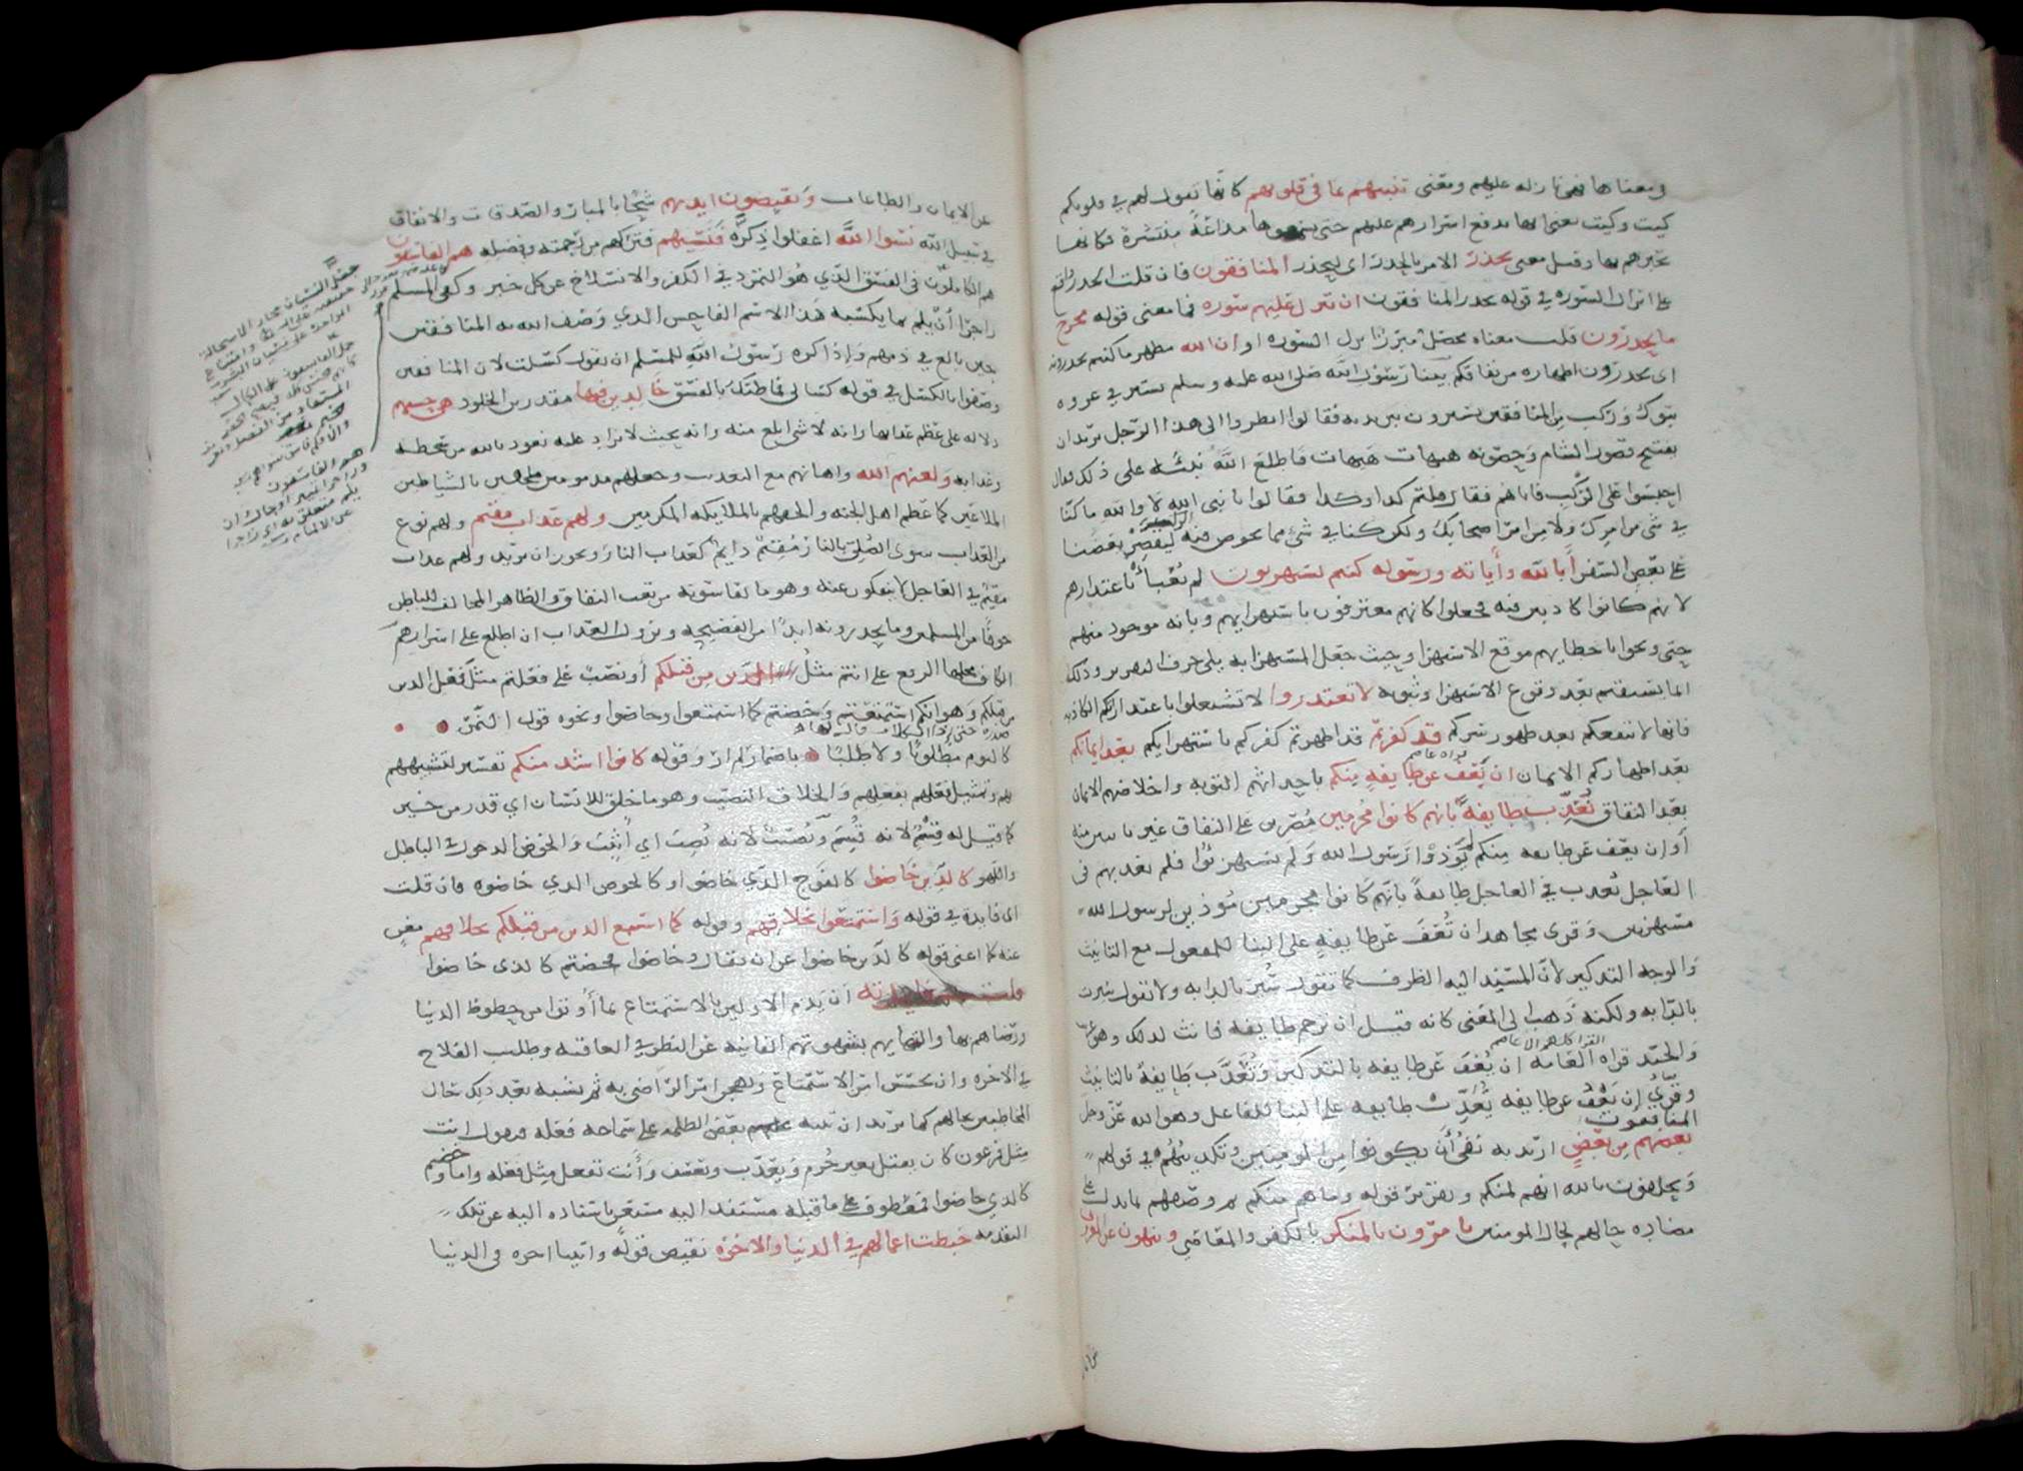 في معناها فهي نازلة عليهم ومعنى تنبيهم بما في قلوبهم كانها تقول لهم في قلوبكم
كيت وكيت يعني انها تذيع اسرارهم عليهم حتى يسمعوها مذاعة منتشرة فكانها
تخبرهم بها وقيل معنى يحذر الامر بالحذر اى ليحذر المنافقون فان قلت الحذر واقع
على انزال السورة في قوله يحذر المنافقون ان تنزل عليهم سورة فما معنى قوله مخرج
ما يحذرون قلت معناه محصل مبرز انزال السورة او ان الله مظهر ما كنتم تحذرونه
اى تحذرون اظهاره من نفاقكم بينا رسول الله صلى الله عليه وسلم يسير في غزوة
تبوك وركب من المنافقين يسيرون بين يديه فقالوا انظروا الى هذا الرجل يريد ان
يفتتح قصور الشام وحصونه هيهات هيهات فاطلع الله نبيه على ذلك فقال
احبسوا على الركب فاتاهم فقال قلتم كذا وكذا فقالوا يا نبي الله لا والله ما كنا
في شي من امرك ولا من امر اصحابك ولكن كنا في شي مما يخوض فيه الركب ليقصر بعضنا
على بعض السفر ابالله وآياته ورسوله كنتم تستهزئون لم يعبأ باعتذارهم
لانهم كانوا كاذبين فيه فجعلوا كانهم معترفون باستهزائهم وبانه موجود منهم
حتى وبخوا باخطائهم موقع الاستهزا حيث جعل المستهزا به يلي حرف التقرير وذلك
انما يستقيم بعد وقوع الاستهزا وثبوته لا تعتذروا لا تشتغلوا باعتذاراتكم الكاذبة
فانها لا تنفعكم بعد ظهور سركم قد كفرتم قد اظهرتم كفركم باستهزايكم بعد ايمانكم
قراءة عاصم
بعد اظهاركم الايمان ان نعف عن طايفة منكم باحداثهم التوبة واخلاصهم الايمان
بعد النفاق نعذب طايفة بانهم كانوا مجرمين مصرين على النفاق غير تايبين منه
أو إن نعف عن طايفة منكم لم يؤذوا رسول الله ولم يستهزئوا فلم نعذبهم في
العاجل نعذب في العاجل طايفة بانهم كانوا مجرمين مؤذين لرسول الله
مستهزئين وقرى مجاهد ان تعف عن طايفة على البنا للمفعول مع التانيث
والوجه التذكير لأن المسند اليه الظرف كما تقول سير بالدابة ولا تقول سيرت
بالدابة ولكنه ذهب الى المعنى كانه قيل ان ترحم طايفة فانث لذلك وهو غريب
القرا كلهم الا عاصم
والجيد قراة العامة ان يعف عن طايفة بالتذكير وتعذب طايفة بالتانيث
وقرئ إن يعف عن طايفة يعذب طايفة على البنا للفاعل وهو الله عز وجل
المنافقون
بعضهم من بعض اريد به نفي أن يكونوا من المؤمنين وتكذيبهم في قولهم
ويحلفون بالله انهم لمنكم وتقرير قوله وما هم منكم ثم وصفهم بما يدل على
مضادة حالهم لحال المومنين يامرون بالمنكر بالكفر والمعاصي وينهون عن المعروف
عن الايمان والطاعات ويقبضون ايديهم شحا بالمبار والصدقات والانفاق
في سبيل الله نسوا الله اغفلوا ذكره فنسيهم فتركهم من رحمته وفضله هم الفاسقون
هم الكاملون في الفسق الذي هو التمرد في الكفر والانسلاخ عن كل خير وكفى المسلم
زاجرا أن يلم بما يكسبه هذا الاسم الفاحش الذي وصف الله به المنافقين
حين بالغ في ذمهم وإذا كره رسول الله للمسلم ان يقول كسلت لان المنافقين
وصفوا بالكسل في قوله كسالى فما ظنك بالفسق خالدين فيها مقدرين الخلود هي حسبهم
دلالة على عظم عذابها وانه لا شي ابلغ منه وانه بحيث لا يزاد عليه نعوذ بالله من سخطه
وعذابه ولعنهم الله واهانهم مع التعذيب وجعلهم مذمومين ملحقين بالشياطين
الملاعين كما عظم اهل الجنة والحقهم بالملايكة المكرمين ولهم عذاب مقيم ولهم نوع
من العذاب سوى الصلي بالنار مقيم دايم كعذاب النار ويجوز ان يريد ولهم عذاب
مقيم في العاجل لا ينفكون عنه وهو ما يقاسونه من تعب النفاق والظاهر المخالف للباطن
خوفا من المسلمين وما يحذرونه ابدا من الفضيحة ونزول العذاب ان اطلع على اسرارهم
الكاف محلها الرفع على انتم مثل الذين من قبلكم أو نصب على فعلتم مثل فعل الذين
من قبلكم وهو انكم استمتعتم وخضتم كما استمتعوا وخاضوا ونحوه قول النمر
كاليوم مطلوبا ولا طلبا باضمار لم ار وقوله كانوا اشد منكم تفسير لتشبيههم
بهم وتمثيل فعلهم بفعلهم والخلاق النصيب وهو ما خلق للانسان اي قدر من خير
كما قيل له قسم لانه قسم ونصيب لانه نصب اي أثبت والخوض الدخول في الباطل
واللهو كالذين خاضوا كالفوج الذي خاضوا او كالخوض الذي خاضوه فان قلت
اي فايدة في قوله واستمتعوا بخلاقهم وقوله كما استمتع الذين من قبلكم بخلاقهم مغن
عنه كما اغنى قوله كالذين خاضوا عن ان يقال وخاضوا فخضتم كالذي خاضوا
ان يذم الاولين بالاستمتاع بما أوتوا من حظوظ الدنيا
ورضاهم بها والتهائهم بشهوتهم الفانية عن النظر في العاقبة وطلب الفلاح
في الاخرة وان يخسس امر الاستمتاع ويهجن امر الراضي به ثم يشبه بعد ذلك حال
المخاطبين بحالهم كما تريد ان تنبه بعض الظلمة على سماجة فعله فتقول انت
مثل فرعون كان يقتل بغير جرم ويعذب ويعسف وأنت تفعل مثل فعله واما وخضتم
كالذي خاضوا فمعطوف على ما قبله مستند اليه مستغن باستناده اليه عن تلك
التقدمة حبطت اعمالهم في الدنيا والاخرة نقيض قوله واتيناه اجره في الدنيا
جعل النسيان مجازا لاستحالة
حقيقته على الله
جعل الفاسقون
هم الفاسقون